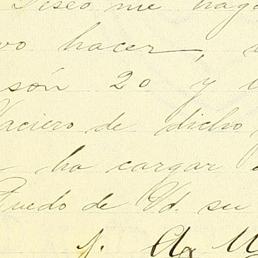 Deseo me haga
vo hacer,
són 20 y
Vaciero de dicho
ha cargar
Puedo de Vd. su